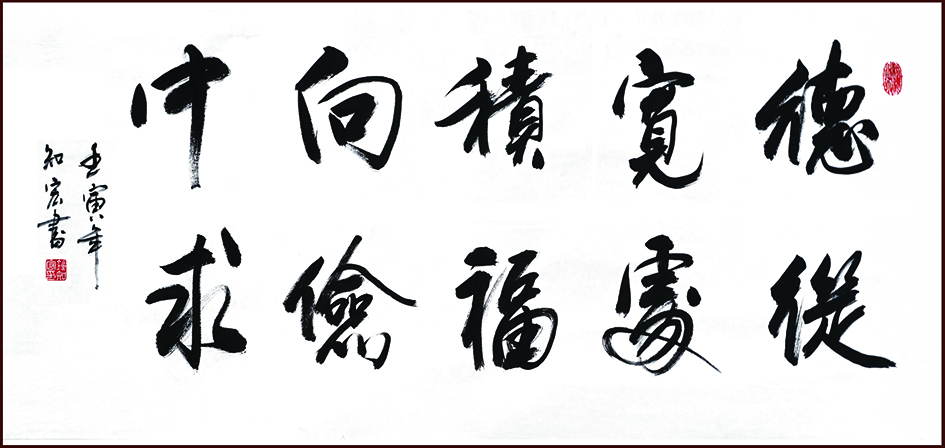 德從
寬處
積福
向儉
中求
壬寅年
知宏書